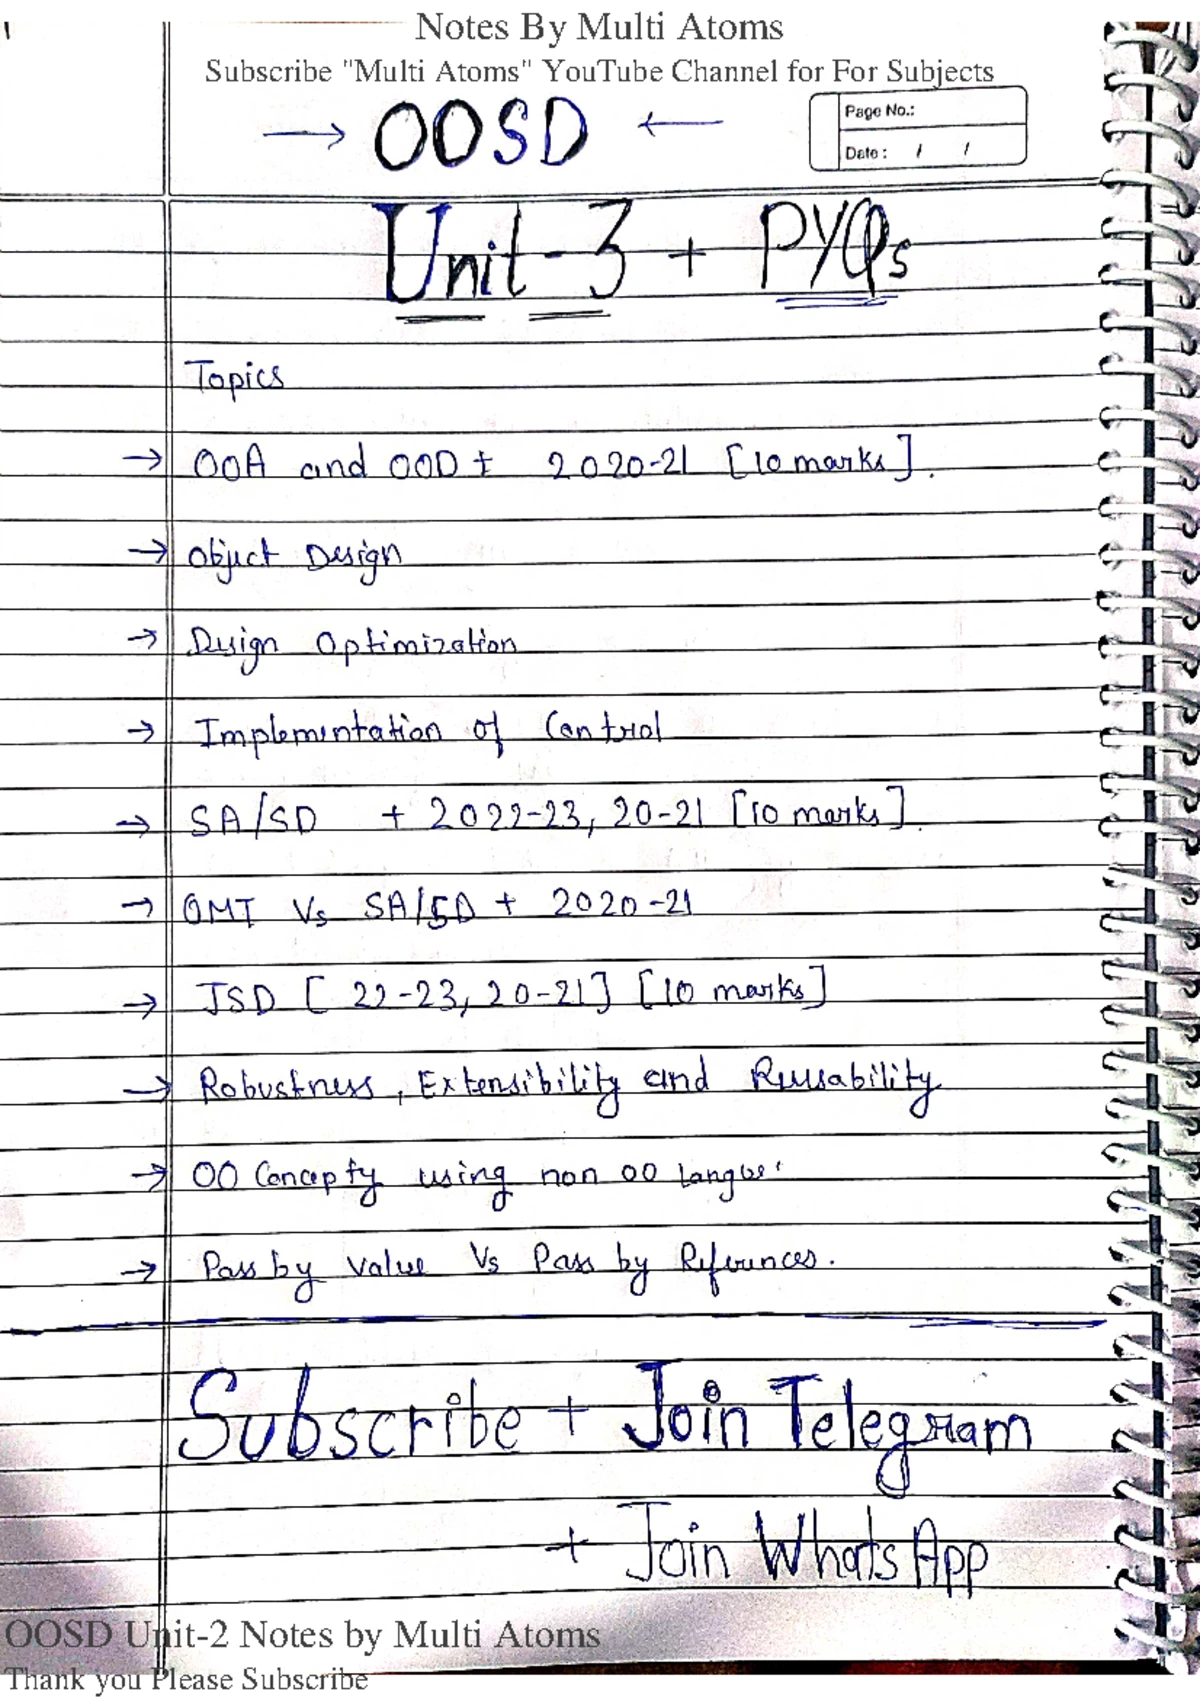 Notes By Multi Atoms
Subscribe "Multi Atoms" YouTube Channel for For Subjects
→ OOSD ←
Page No.:
Date : / /
Unit-3 + PYQs
Topics
→ OOA and OOD + 2020-21 [10 marks].
→ Object Design
→ Design Optimization
→ Implementation of Control
→ SA/SD + 2022-23, 20-21 [10 marks].
→ OMT Vs SA/SD + 2020-21
→ JSD [22-23, 20-21] [10 marks]
→ Robustness, Extensibility and Reusability
→ OO Concepty using non OO
→ Pass by value Vs Pass by References.
Subscribe + Join Telegram
+ Join WhatsApp
OOSD Unit-2 Notes by Multi Atoms
Thank you Please Subscribe